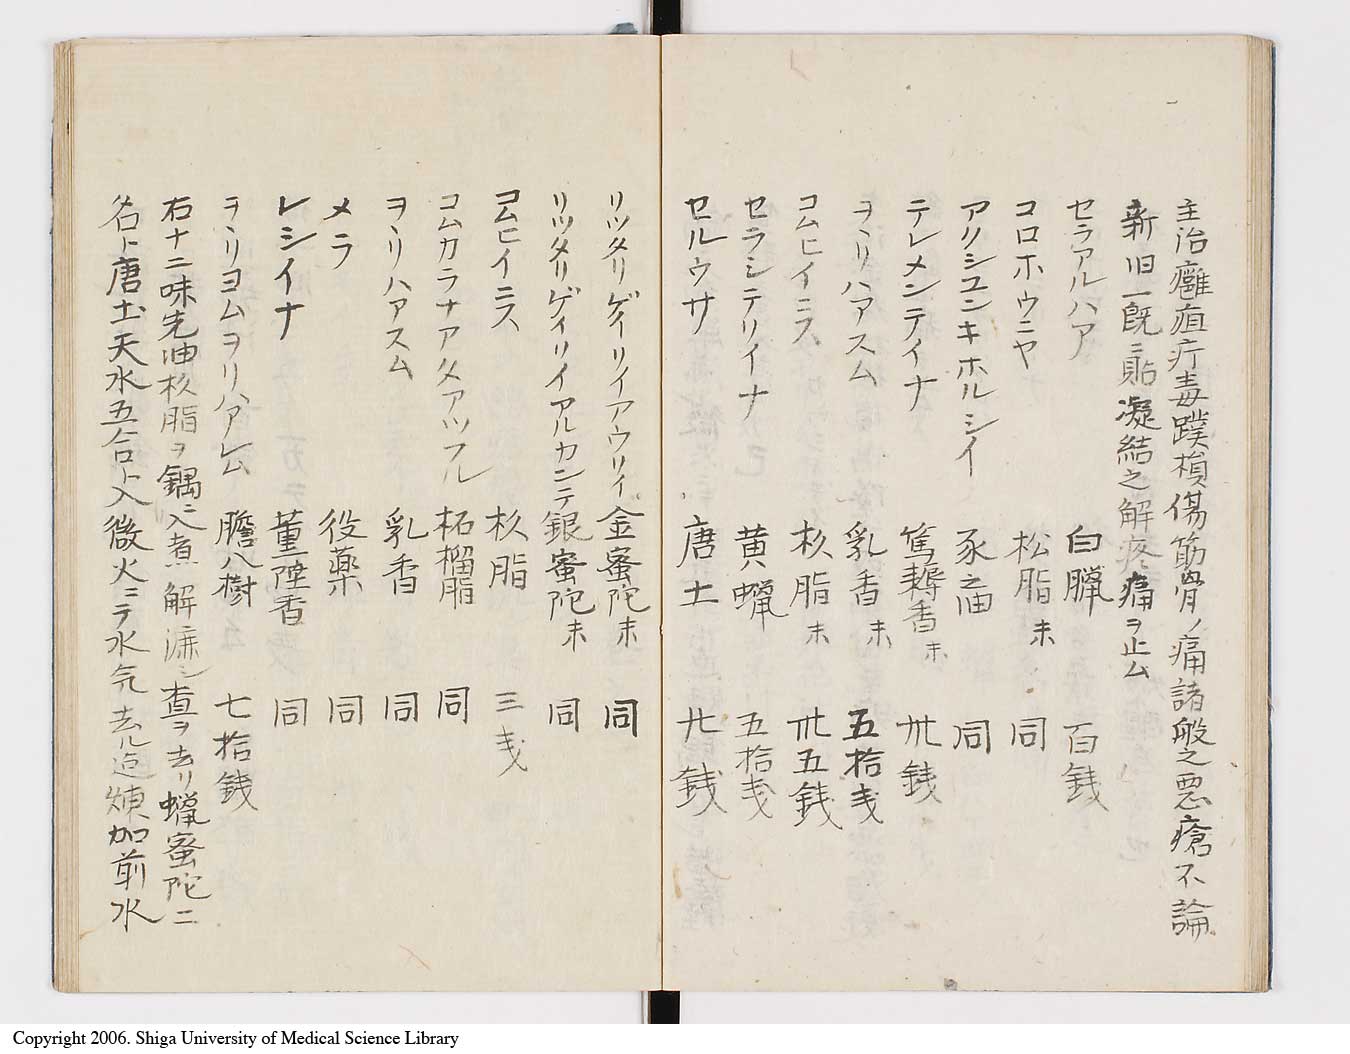 主治癰疽疔毒蹼損傷筋骨ノ痛諸般之悪瘡不論
新旧一既ニ貼凝結之解疼痛ヲ止ム
セラアルハア 白臘 百銭
コロホウニヤ 松脂末 同
アクシユンキホルシイ 豕之油 同
テレメンテイナ 篤耨香末 卅銭
ヲヽリハアスム 乳香末 五拾戋
コムヒイニス 枩脂末 卅五銭
セラシテリイナ 黄蠟 五拾戋
セルウサ 唐土 廿銭
リツタリゲイリイアウリイ 金蜜陀末 同
リツタリゲイリイアルカンテ 銀蜜陀末 同
コムヒイニス 枩脂 三戋
コムカラナアタアツフル 柘榴脂 同
ヲヽリハアスム 乳香 同
メラ 役薬 同
レシイナ 董陸香 同
ヲヽリヨムヲリハアレム 膽八樹 七拾銭
右十二味先油枩脂ヲ鍋ニ入煮解漉シ査ヲ去リ蠟蜜陀二
名ト唐土天水五合ト入微火ニテ水気去ル迠煉加前水
Copyright 2006. Shiga University of Medical Science Library